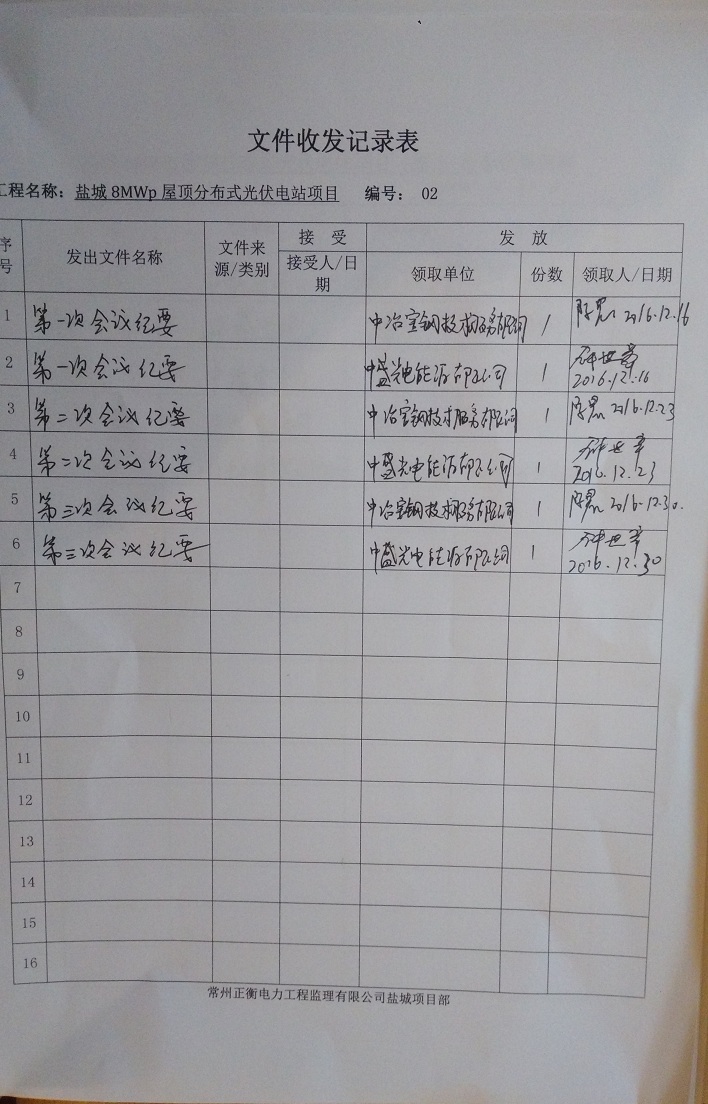 文件收发记录表
工程名称：盐城 8MWp 屋顶分布式光伏电站项目 编号： 02
序号 发出文件名称 文件来源/类别 接 受 发 放
接受人/日期 领取单位 份数 领取人/日期
1 第一次会议纪要 中冶宝钢技术服务有限公司 1 2016.12.16
2 第一次会议纪要 中盛光电能源有限公司 1 世章
2016.12.16
3 第二次会议纪要 中冶宝钢技术服务有限公司 1 2016.12.23
4 第二次会议纪要 中盛光电能源有限公司 1 世章
2016.12.23
5 第三次会议纪要 中冶宝钢技术服务有限公司 1 2016.12.30.
6 第三次会议纪要 中盛光电能源有限公司 1 世章
2016.12.30
7
8
9
10
11
12
13
14
15
16
常州正衡电力工程监理有限公司盐城项目部